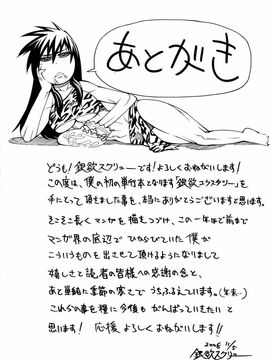 あとがき
どうも！銀欲スクリューです！よろしくおねがいします！
この度は、僕の初の単行本となります「銀欲エクスタシー」を
手にとって頂きました事を、本当にありがとうございますと思います
そこそこ長くマンガを描きつづけ、この一年ほど前まで
マンガ界の底辺でひからびていた僕が
こういうものを出させて頂けるようになりまして
嬉しさと読者の皆様への感謝の念と、
あと単純に季節の寒さでうちふるえています。(年末…)
これらの事を糧に今後もがんばっていきたいと
思います！応援、よろしくおねがいします!!
銀欲スクリュー